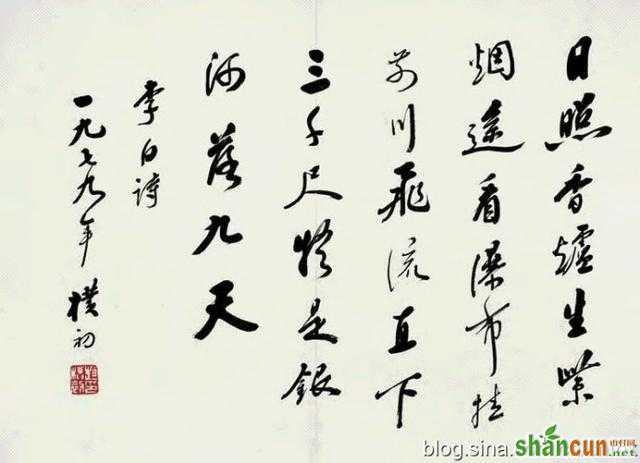 日照香爐生紫
烟遙看瀑布挂
前川飛流直下
三千尺疑是銀
河落九天
李白詩
一九七九年 樸初
blog.sina.
shancun
.net